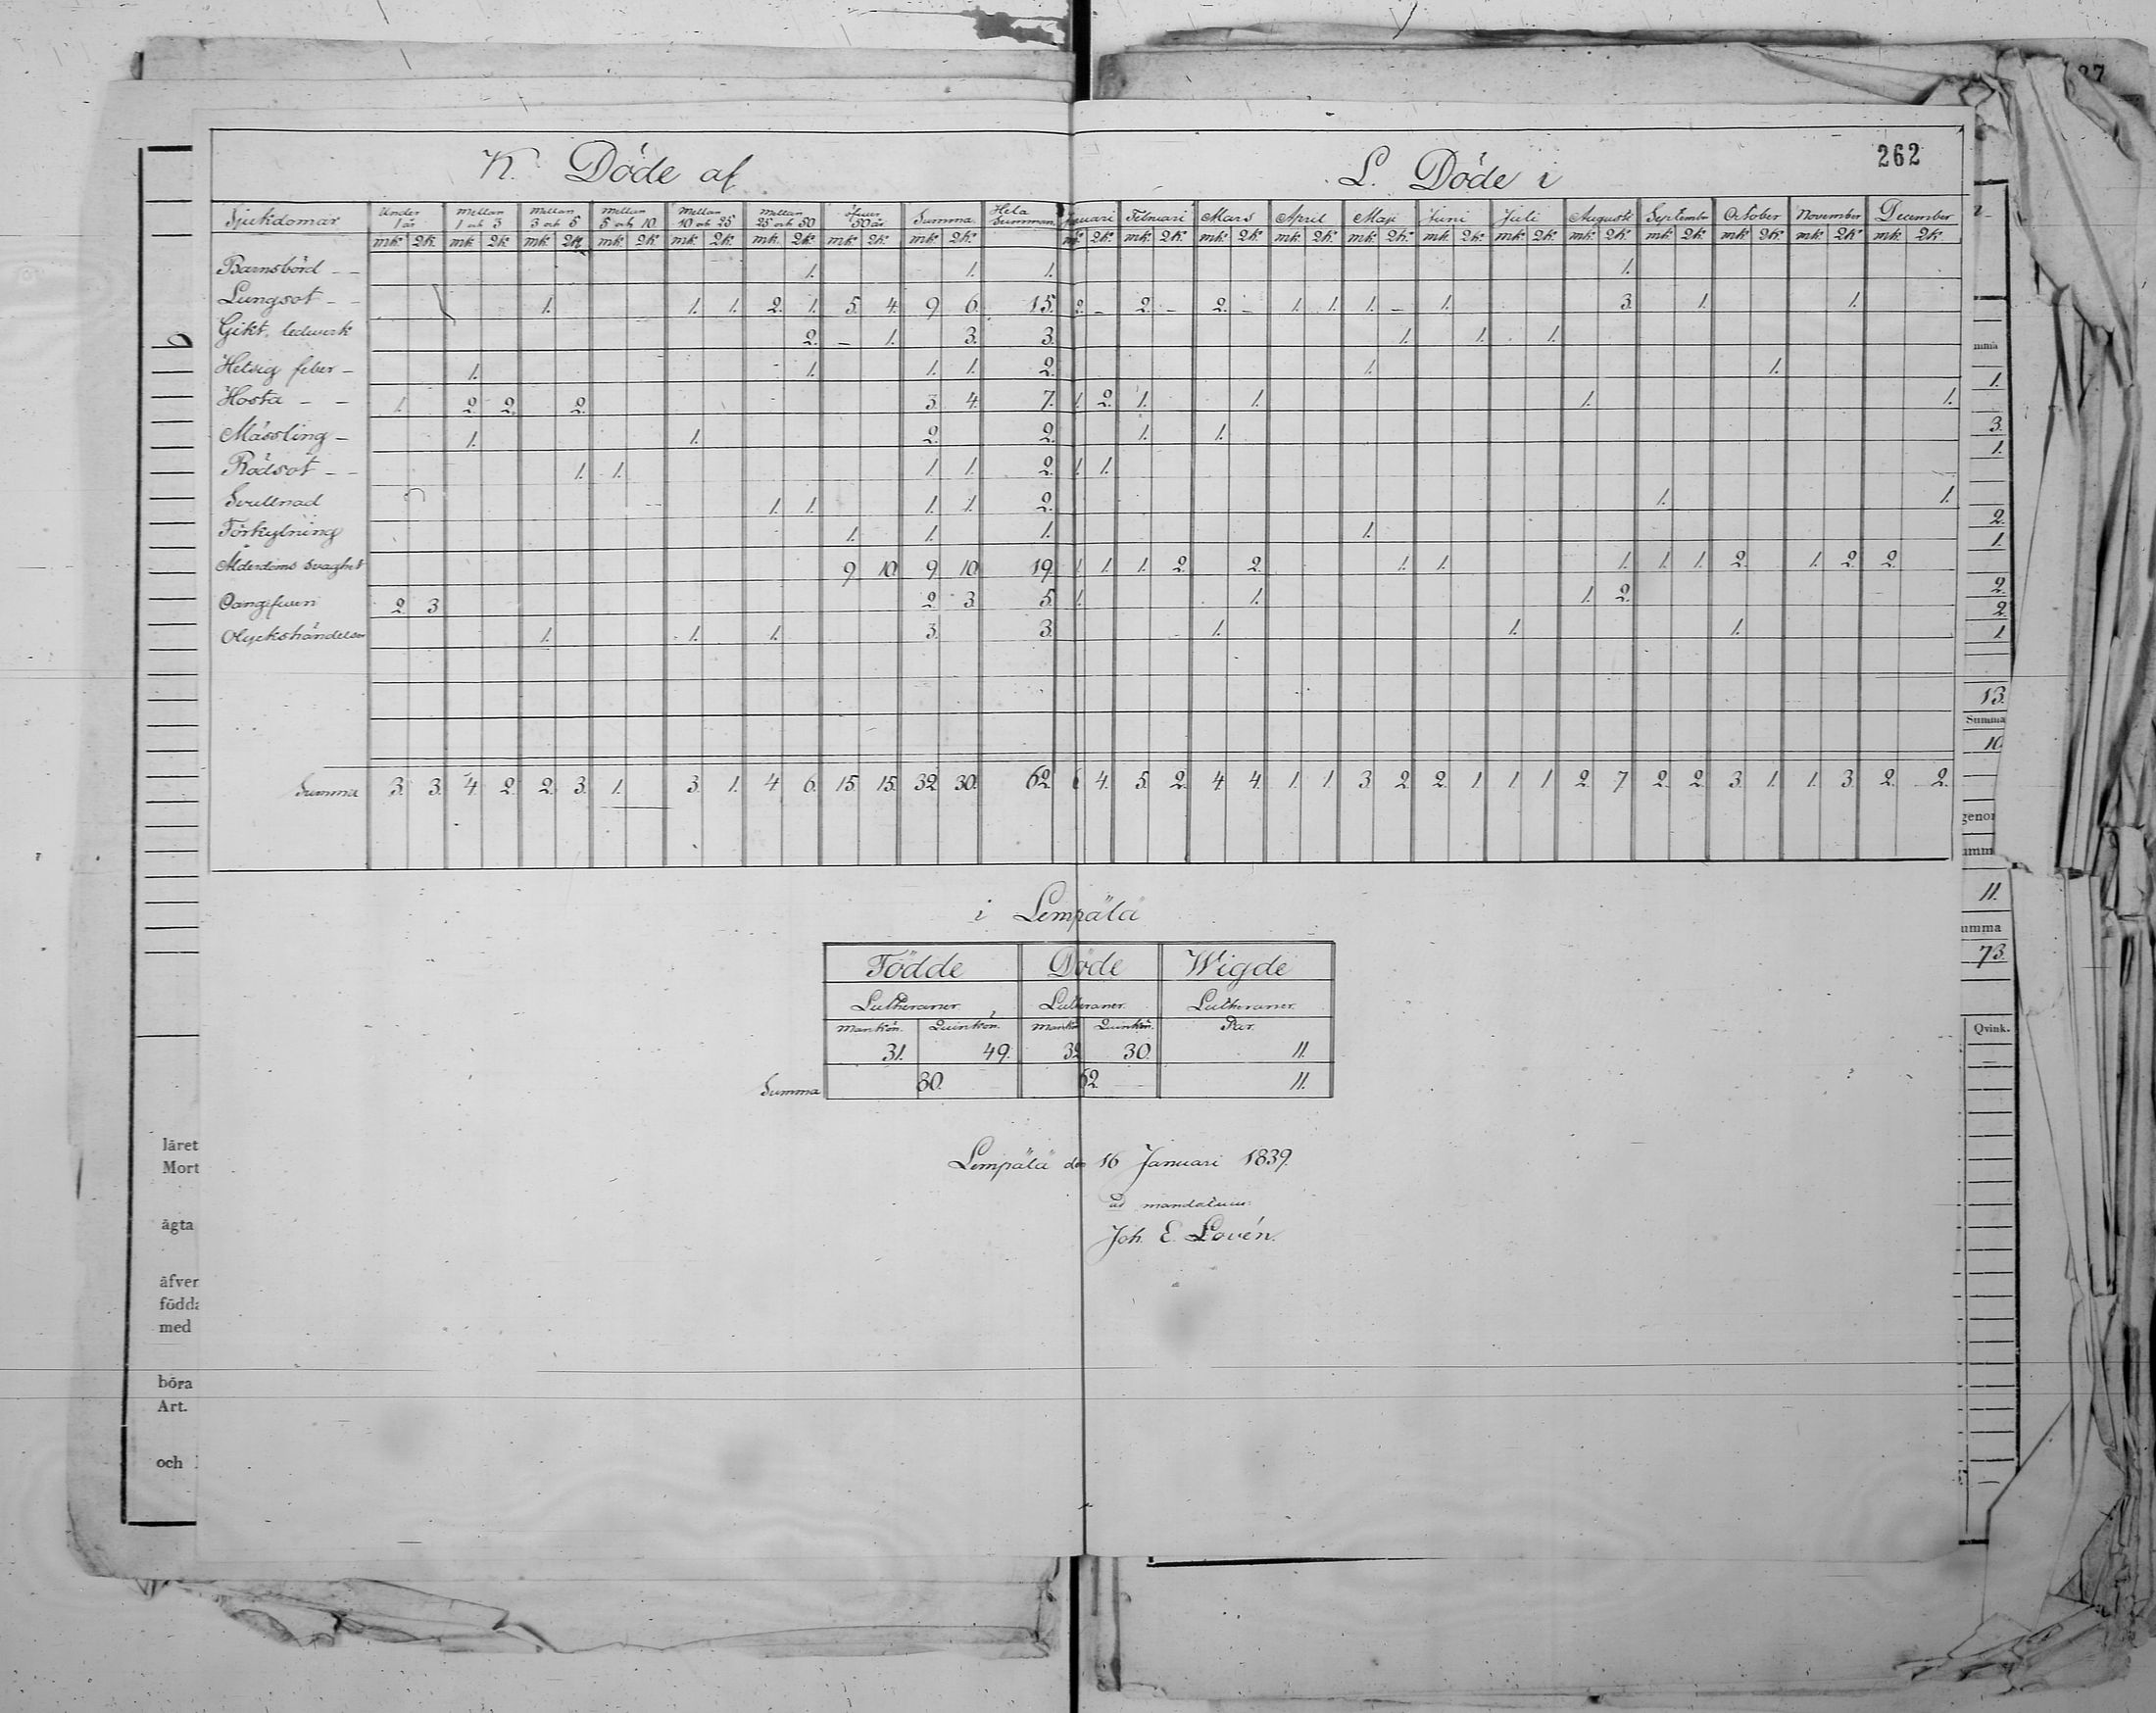 262
K. Döde af
L. Döde i
Sjukdomar Under 1 år Mellan 1 och 3 Mellan 3 och 5 Mellan 5 och 10 Mellan 10 och 25 Mellan 25 och 50 öfver 50 år Summa Hela Summan Januari Februari Mars April Maji Juni Juli Augusti September October November December
mk. Qk. mk Qk. mk. Qk. mk. Qk. mk. Qk. mk. Qk. mk. Qk. mk. Qk. mk. Qk. mk. Qk. mk. Qk. mk. Qk. mk. Qk. mk. Qk. mk. Qk. mk. Qk. mk. Qk. mk. Qk. mk. Qk. mk. Qk.
Barnsbörd - - 1. 1. 1. 1.
Lungsot - - 1. 1. 1. 2. 1. 5. 4. 9 6. 15. 2. - 2. - 2. - 1. 1. 1. - 1. 3. 1. 1.
Gikt, ledverk 2. - 1. 3. 3. 1. 1. 1.
Hetsig feber - 1. 1. 1. 1. 2. 1. 1.
Hosta - - 1. 2. 2. 2. 3. 4. 7. 1. 2. 1. 1. 1. 1.
Mässling - 1. 1. 2. 2. 1. 1.
Rödsot - - 1. 1. 1 1. 2. 1. 1.
Svullnad 1. 1. 1. 1. 2. 1. 1.
Förkylning 1. 1. 1. 1.
Ålderdoms svaghet 9. 10. 9. 10. 19. 1. 1. 1. 2. 2. 1. 1. 1. 1. 1. 2. 1. 2. 2.
Oangifven 2. 3. 2. 3. 5. 1. 1. 1. 2.
Olyckshändelser 1. 1. 1. 3. 3. 1. 1. 1.
Summa 3. 3. 4. 2. 2. 3. 1. 3. 1. 4. 6. 15. 15. 32. 30. 62. 6 4. 5. 2. 4 4. 1. 1. 3. 2. 2. 1. 1. 1. 2. 7. 2. 2. 3. 1. 1. 3. 2. 2.
i Lempälä
Födde Döde Wigde
Lutheraner. Lutheraner. Lutheraner.
Mankön. Quinkön. Mankön Quinkön. Par.
31. 49. 32 30. 11.
Summa 80. 62. 11.
Lempälä den 16 Januari 1839.
ad mandatum:
Joh. E. Lovén.
läret
Mort
ägta
äfver
födda
med
böra
Art.
och
mma
1.
3.
1.
2.
1.
2.
2.
1
13.
Summa
10.
genom
umm
11.
umma
73.
Qvink.